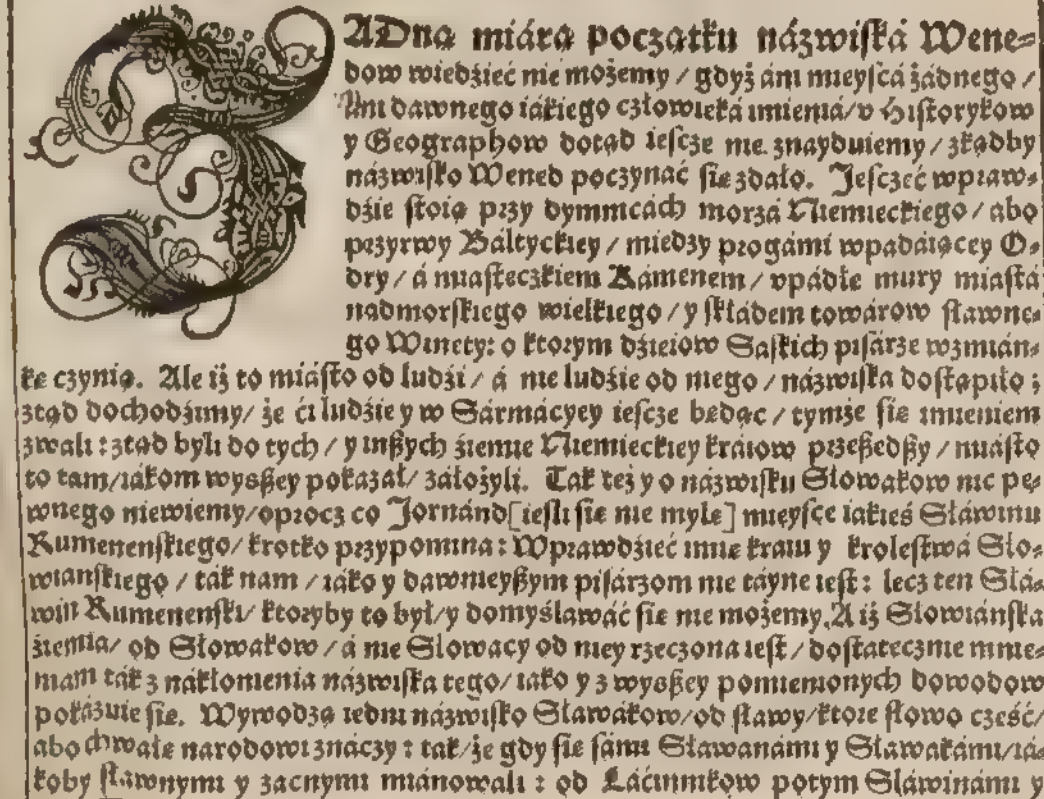 ŻADną miárą początku názwiská Wene=
dow wiedźieć nie możemy / gdyż áni mieyscá żadnego /
Ani dawnego iákiego człowieká imienia / v Historykow
y Geographow dotąd iescze nie znayduiemy / zkądby
názwisko Wened poczynáć się zdało. Jesczeć wpraw=
dźie stoią przy dymnicách morzá Niemieckiego / abo
przyrwy Báltyckiey / miedzy progámi wpadáiącey O=
dry / á miásteczkiem Kámenem / vpádłe mury miástá
nadmorskiego wielkiego / y skłádem towárow sławne=
go Winety: o ktorym dźieiow Saskich pisárze wzmián=
kę czynią. Ale iż to miásto od ludźi / á nie ludźie od niego / názwiská dostąpiło ;
ztąd dochodźimy / że ći ludźie y w Sármácyey iescze będąc / tymże się imieniem
zwali : ztąd byli do tych / y inßych źiemie Niemieckiey kráiow przeßedßy / miásto
to tam / iákom wyßßey pokazał / záłożyli. Tak też y o názwisku Słowakow nic pe=
wnego niewiemy / oprocz co Jornánd [iesli się nie mylę] mieysce iákieś Sláwinu
Rumenenskiego / krotko przypomina : Wprawdźieć imię kráiu y krolestwá Sło=
wianskiego / ták nam / iáko y dawnieyßym pisárzom nie táyne iest : lecz ten Slá=
win Rumenenski / ktoryby to był / y domyślawáć się nie możemy. A iż Słowiánska
źiemia / od Słowakow / á nie Słowacy od niey rzeczona iest / dostátecznie mnie=
mam ták z nákłonienia názwiská tego / iáko y z wyßßey pomienionych dowodow
pokázuie się. Wywodzą iedni názwisko Sławákow / od sławy / ktore słowo cześć /
abo chwałę narodowi znáczy : ták / że gdy się sámi Sławanámi y Sławakámi / iá=
koby sławnymi y zacnymi miánowáli : od Láćinnikow potym Sláwinámi y